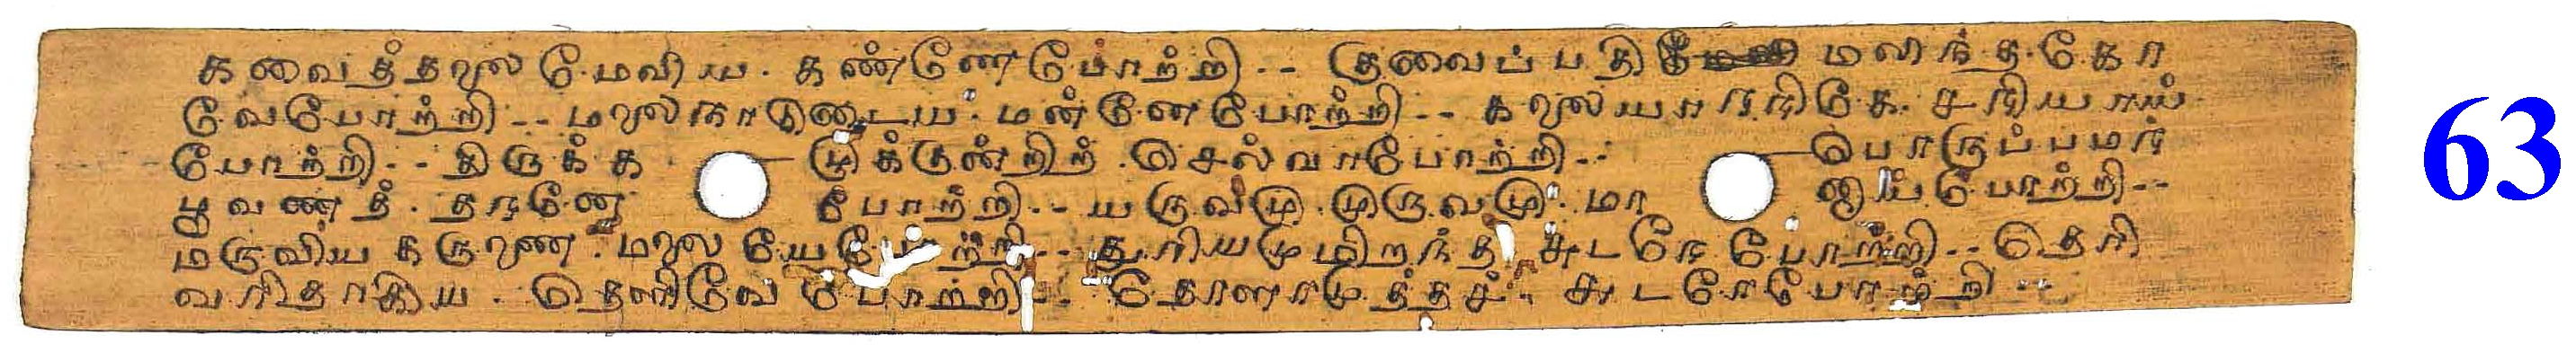 கவைத்தலை மேவிய கண்ணே போற்றி-- குவைப்பதி மலிந்த கோ
வே போற்றி-- மலைநாடுடைய மன்னே போற்றி-- கலையாரரிகே சரியாய்
போற்றி-- திருக்க ழுக்குன்றிற் செல்வா போற்றி-- பொருப்பமர்
பூவணத் தரனே போற்றி-- யருவமு முருவமு மா னாய் போற்றி--
மருவிய கருணை மலையே போற்றி-- துரியமுமிறந்த சுடரே போற்றி-- தெரி
வரிதாகிய தெளிவே போற்றி-- தோளாமுத்தச் சுடரே போற்றி--
63